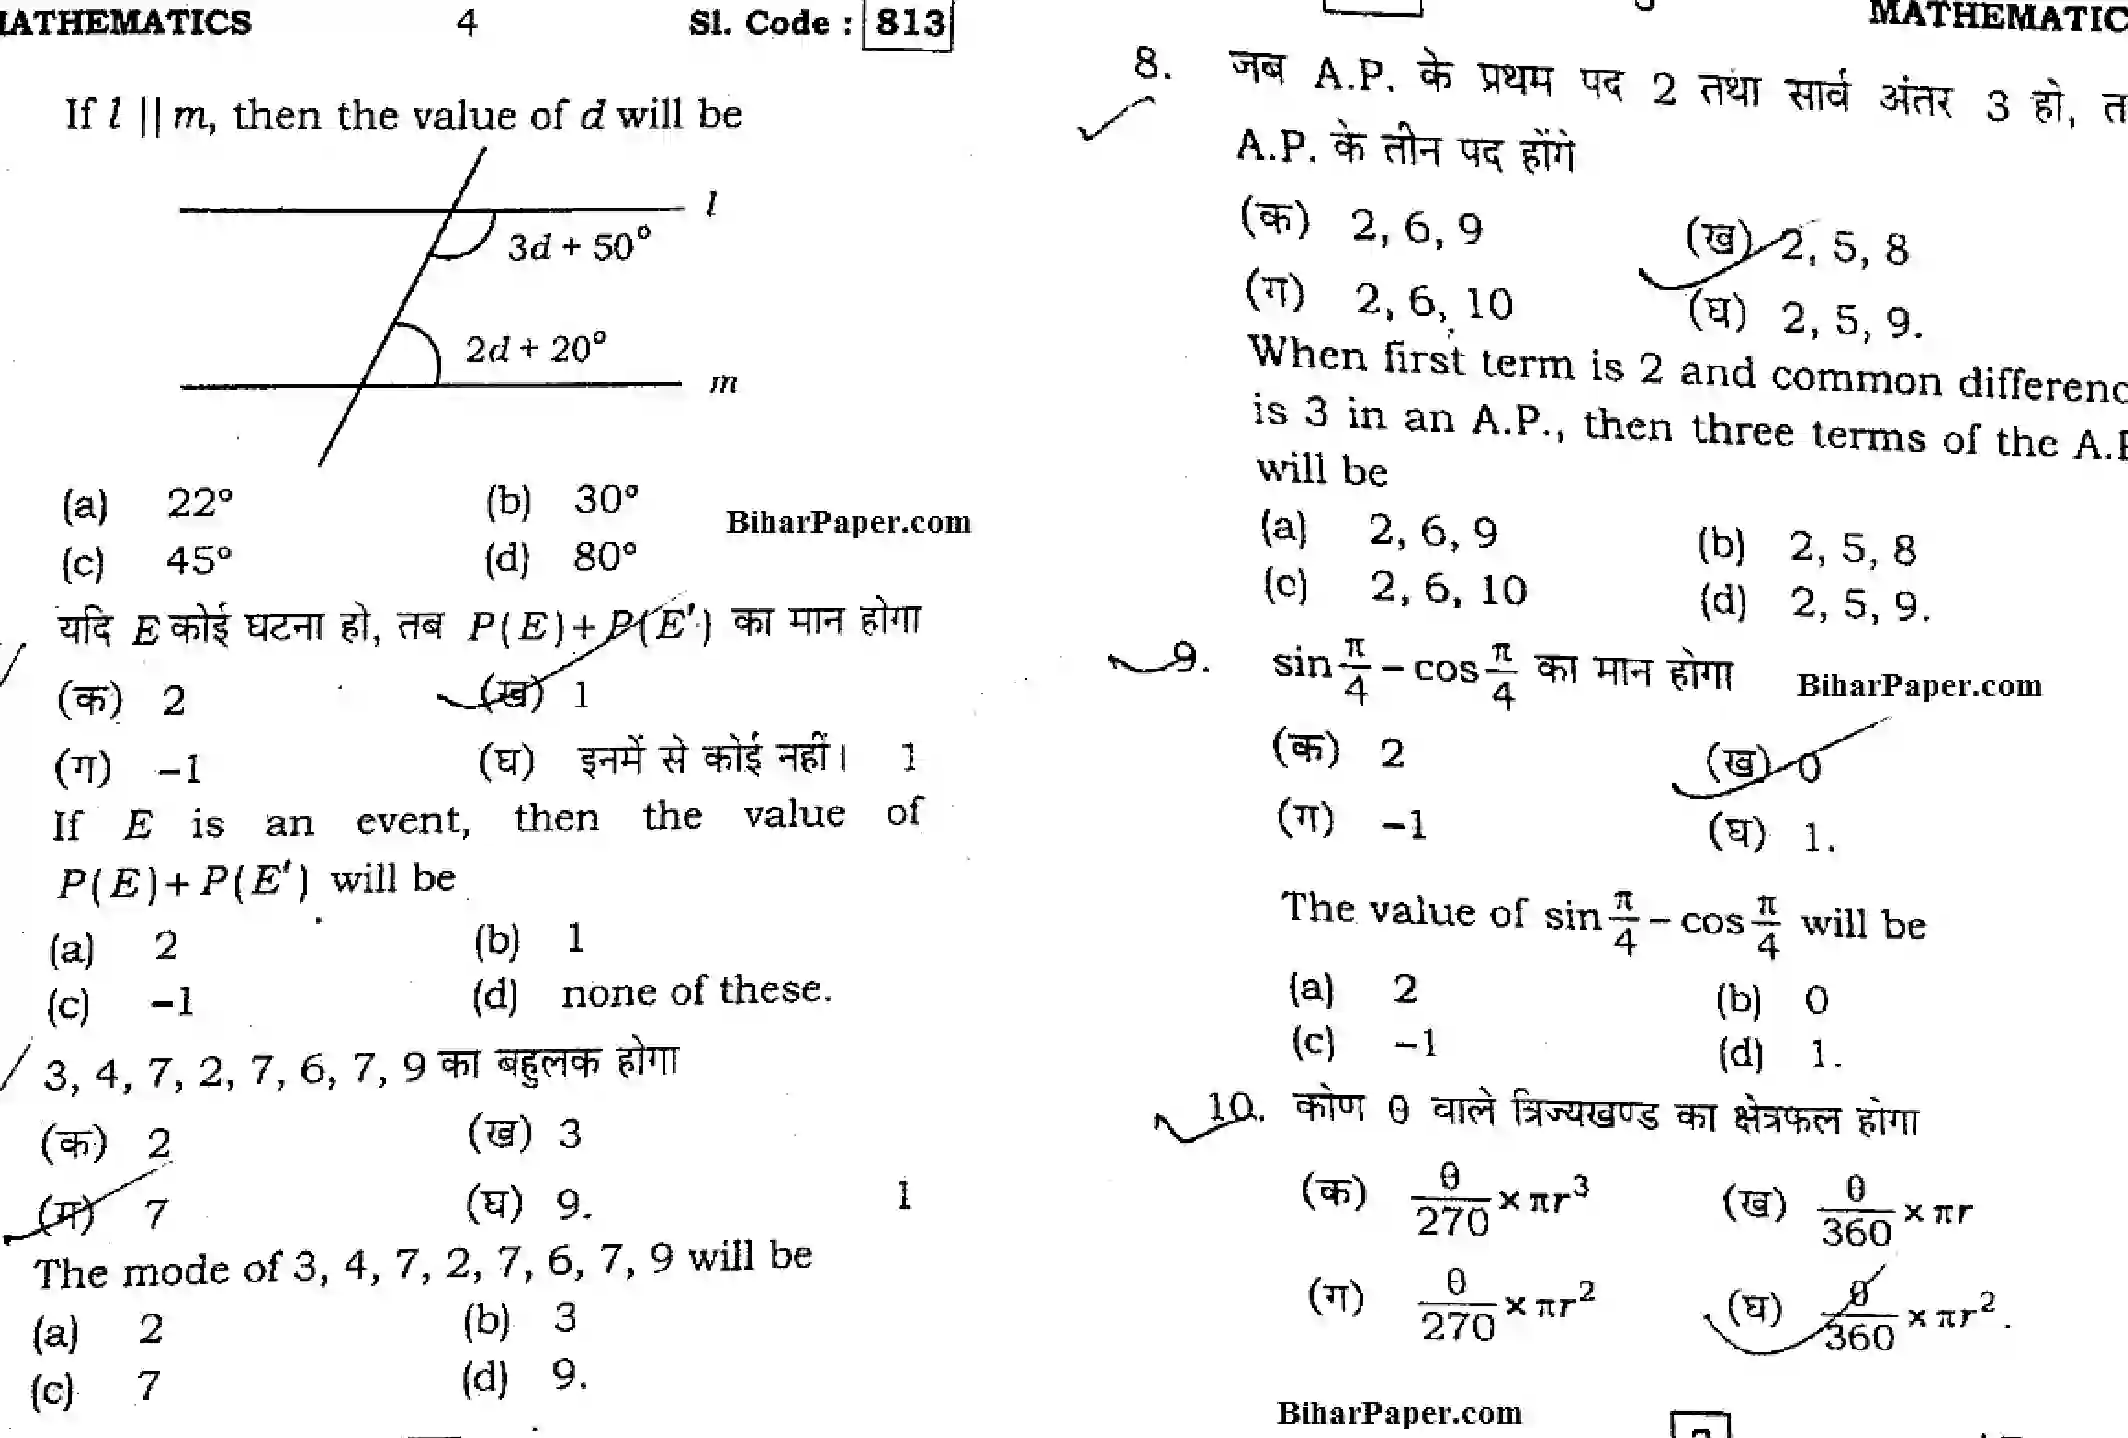 MATHEMATICS 4 Sl. Code : 813
If l || m, then the value of d will be
l
3d + 50°
2d + 20°
m
(a) 22° (b) 30°
BiharPaper.com
(c) 45° (d) 80°
यदि E कोई घटना हो, तब P(E)+P(E') का मान होगा
(क) 2 (ख) 1
(ग) –1 (घ) इनमें से कोई नहीं। 1
If E is an event, then the value of
P(E)+P(E') will be
(a) 2 (b) 1
(c) –1 (d) none of these.
3, 4, 7, 2, 7, 6, 7, 9 का बहुलक होगा
(क) 2 (ख) 3
(ग) 7 (घ) 9. 1
The mode of 3, 4, 7, 2, 7, 6, 7, 9 will be
(a) 2 (b) 3
(c) 7 (d) 9.
MATHEMATIC
8. जब A.P. के प्रथम पद 2 तथा सार्व अंतर 3 हो, त
A.P. के तीन पद होंगे
(क) 2, 6, 9 (ख) 2, 5, 8
(ग) 2, 6, 10 (घ) 2, 5, 9.
When first term is 2 and common differenc
is 3 in an A.P., then three terms of the A.P
will be
(a) 2, 6, 9 (b) 2, 5, 8
(c) 2, 6, 10 (d) 2, 5, 9.
9. sin π/4 – cos π/4 का मान होगा
BiharPaper.com
(क) 2 (ख) 0
(ग) –1 (घ) 1.
The value of sin π/4 – cos π/4 will be
(a) 2 (b) 0
(c) –1 (d) 1.
10. कोण θ वाले त्रिज्यखण्ड का क्षेत्रफल होगा
(क) θ/270 × πr³ (ख) θ/360 × πr
(ग) θ/270 × πr² (घ) θ/360 × πr².
BiharPaper.com